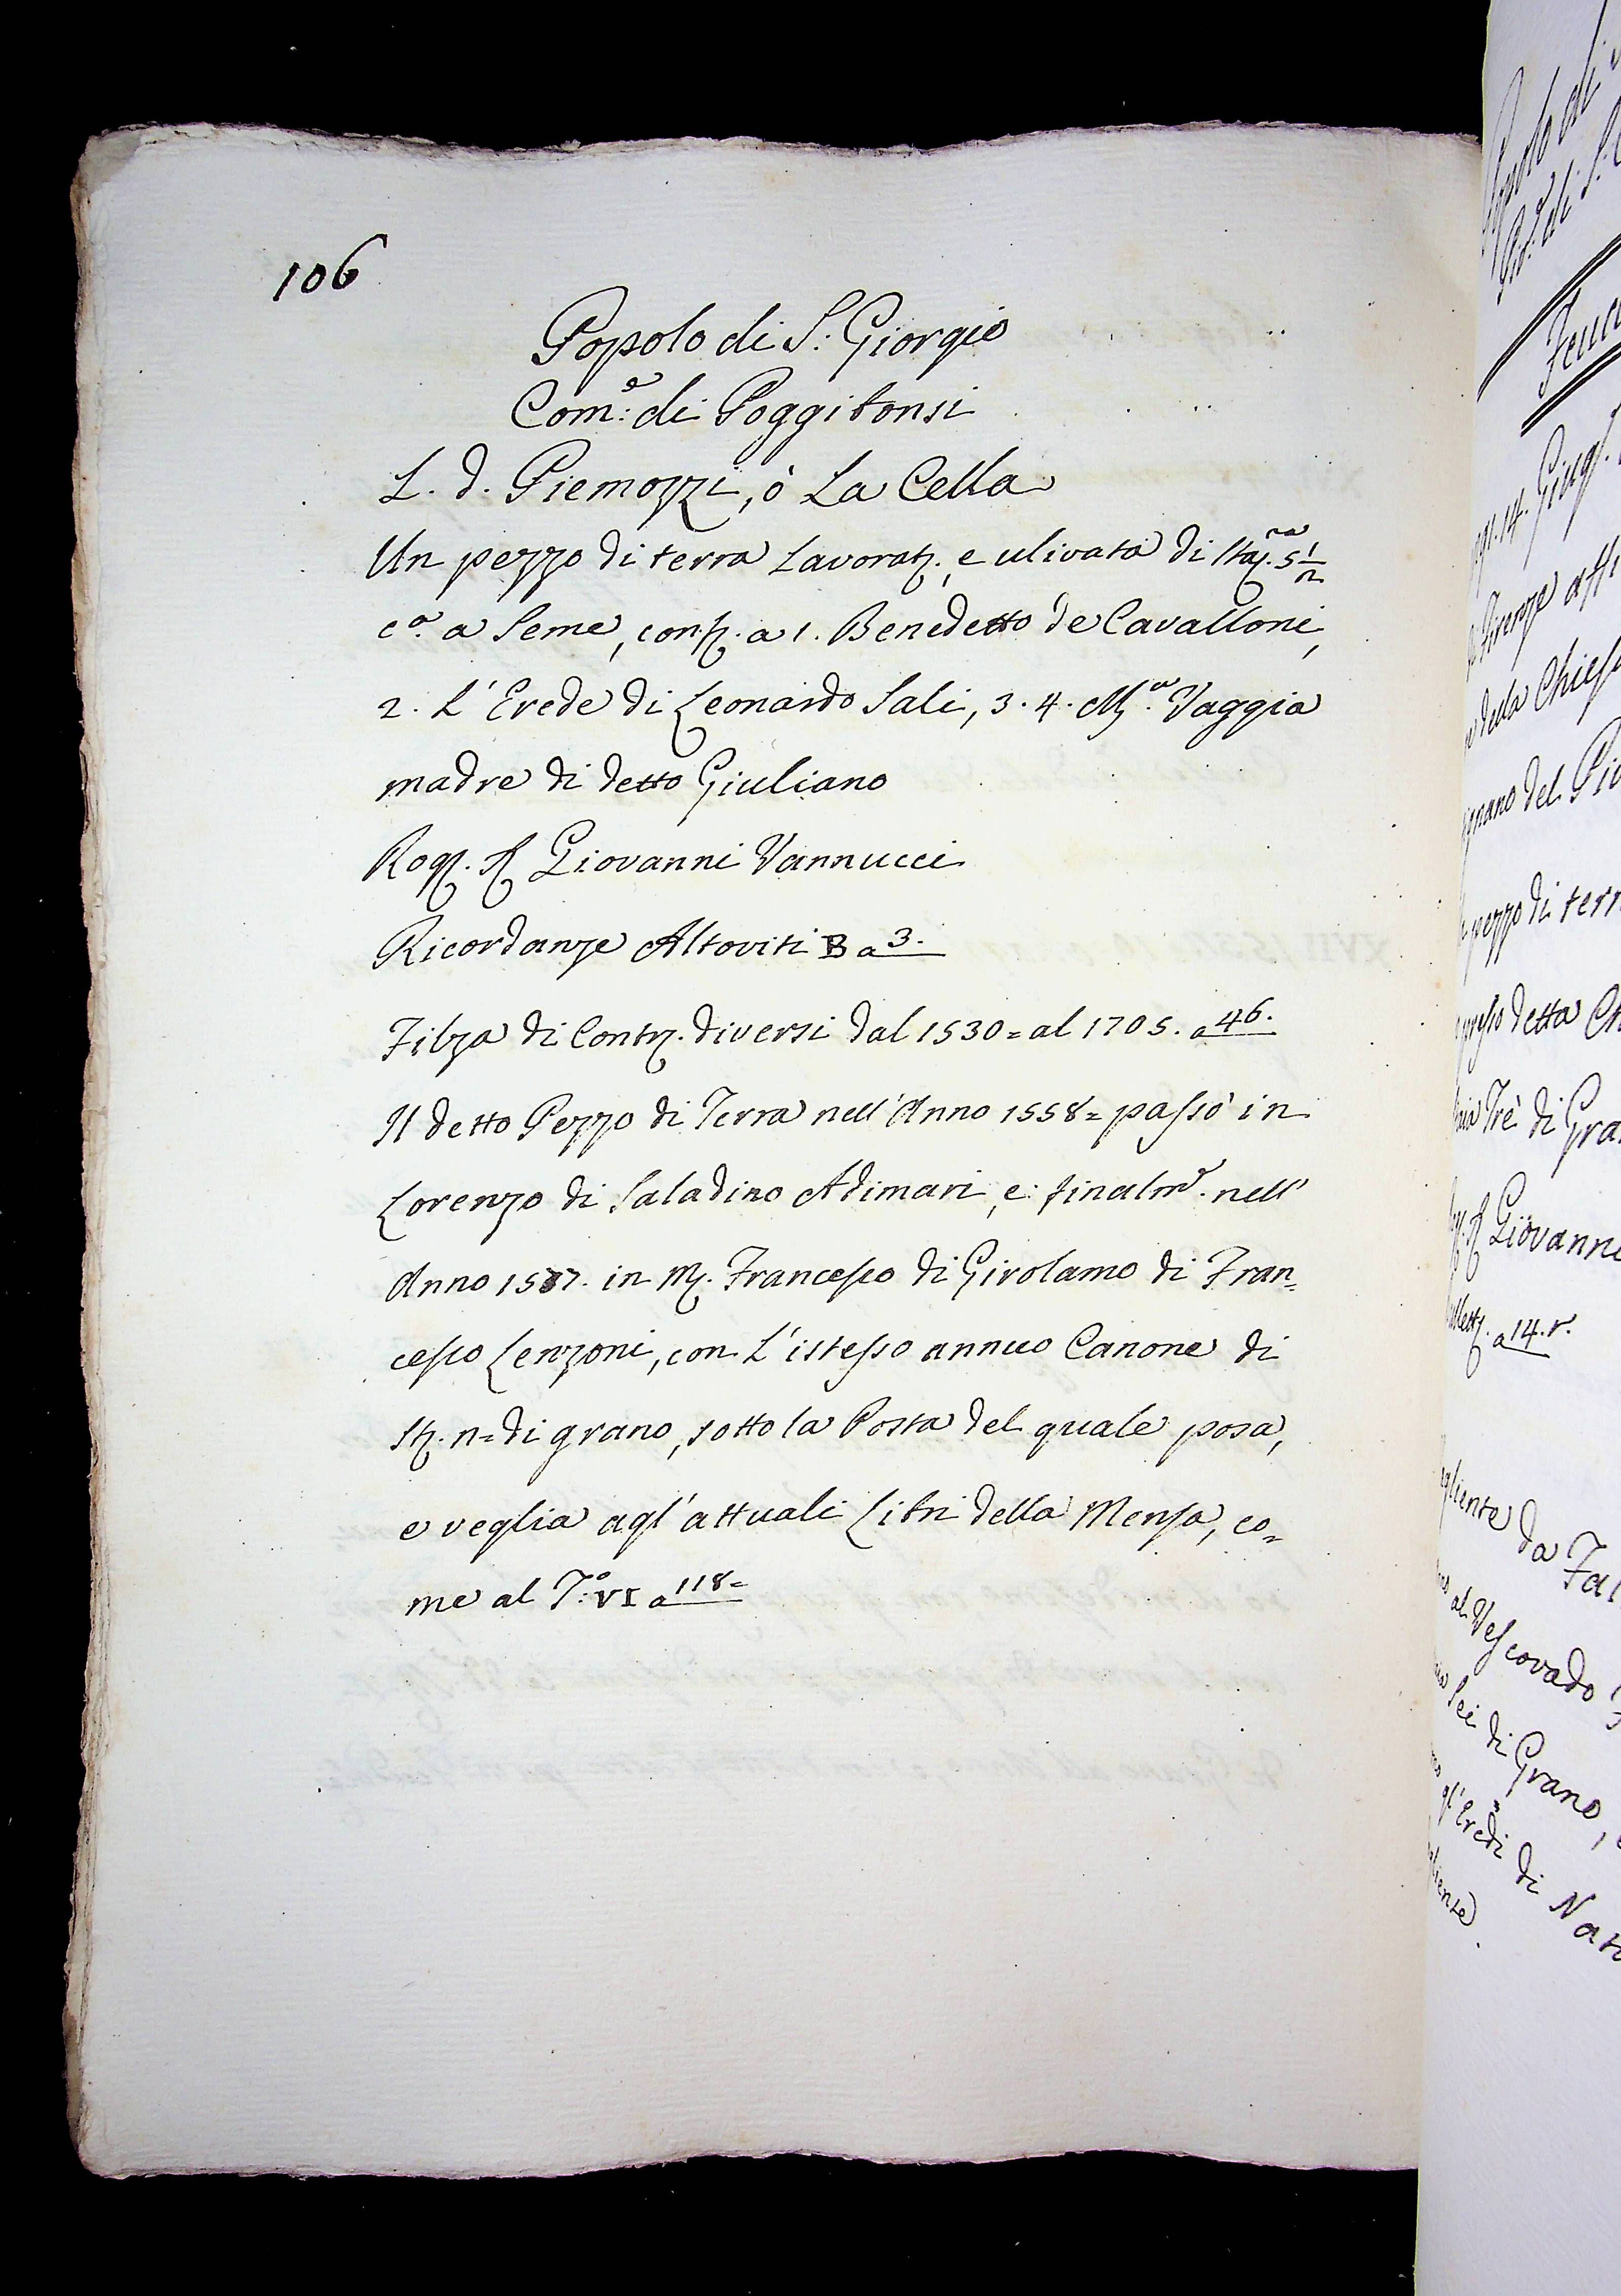 106
Popolo di S: Giorgio
Com:e di Poggibonsi
L. d. Piemozzi, ò La Cella
Un pezzo di terra Lavorat., e ulivata di Sta. 5 1/2
c.a a Seme, conf. a 1. Benedetto de Cavalloni,
2. L'Erede di Leonardo Sali, 3. 4. M.a Vaggia
madre di detto Giuliano
Rog. S Giovanni Vannucci
Ricordanze Altoviti B a 3.
Filza di Contr. diversi dal 1530= al 1705. a 46.
Il detto Pezzo di Terra nell'Anno 1558= passò in
Lorenzo di Saladino Adimari, e finalm.e nell'
Anno in M. Francesco di Girolamo di Fran=
cesco Lenzoni, con L'istesso annuo Canone di
St. di grano, sotto la Posta del quale posa,
e veglia agl'attuali Libri della Mensa, co=
me al T:o VI a 118=
Popolo di
di S:
14. Giug.
Firenze
della Chiesa
del
pezzo di terr
detta Ch
Trè di Gra
Giovanni
a 14. r.
da
al Vescovado
Sei di Grano,
gl'Eredi di